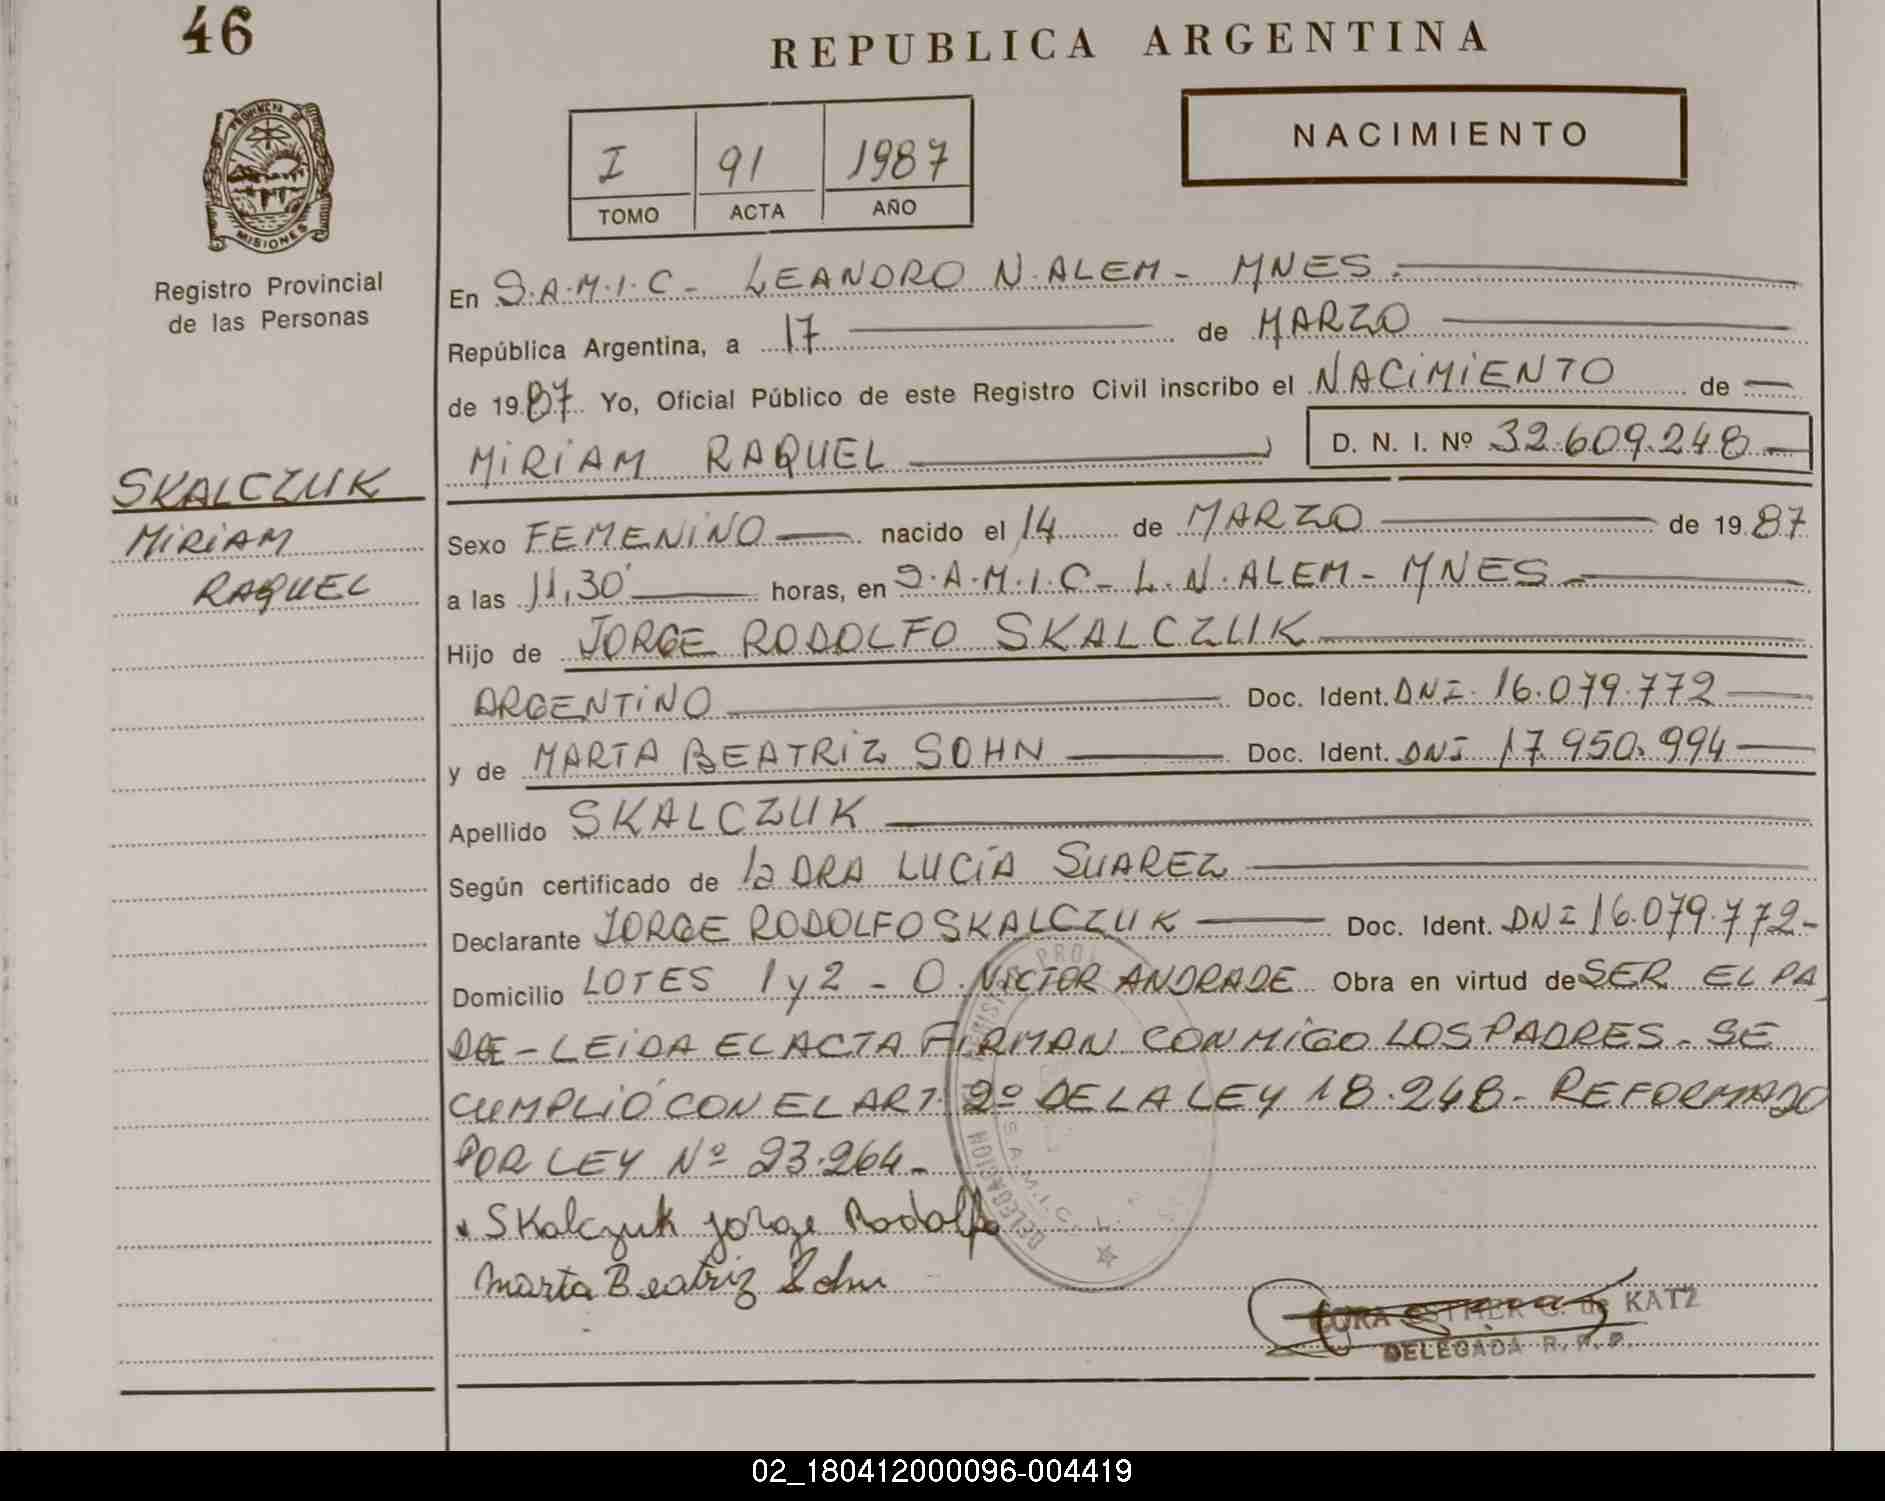 46
PROVINCIA DE
MISIONES
Registro Provincial
de las Personas
SKALCZUK
MIRIAM
RAQUEL
REPUBLICA ARGENTINA
I 91 1987
TOMO ACTA AÑO
NACIMIENTO
En S.A.M.I.C - LEANDRO N. ALEM - MNES.
República Argentina, a 17 de MARZO
de 1987 Yo, Oficial Público de este Registro Civil inscribo el NACIMIENTO de
MIRIAM RAQUEL D. N. I. Nº 32.609.248
Sexo FEMENINO nacido el 14 de MARZO de 1987
a las 11,30 horas, en S.A.M.I.C - L.N. ALEM - MNES
Hijo de JORGE RODOLFO SKALCZUK
ARGENTINO Doc. Ident. DNI. 16.079.772
y de MARTA BEATRIZ SOHN Doc. Ident. DNI 17.950.994
Apellido SKALCZUK
Según certificado de la DRA LUCÍA SUAREZ
Declarante JORGE RODOLFO SKALCZUK Doc. Ident. DNI 16.079.772-
Domicilio LOTES 1 y 2 - O. VICTOR ANDRADE Obra en virtud de SER EL PA
DRE - LEIDA EL ACTA FIRMAN CONMIGO LOS PADRES - SE
CUMPLIÓ CON EL ART. 2º DE LA LEY 18.248 - REFORMADO
POR LEY Nº 23.264 -
Skalczuk Jorge Rodolfo
Marta Beatriz Sohn
DELEGACION S.A.M.I.C. L.
ESTHER C. de KATZ
DELEGADA R. P. P.
02_180412000096-004419